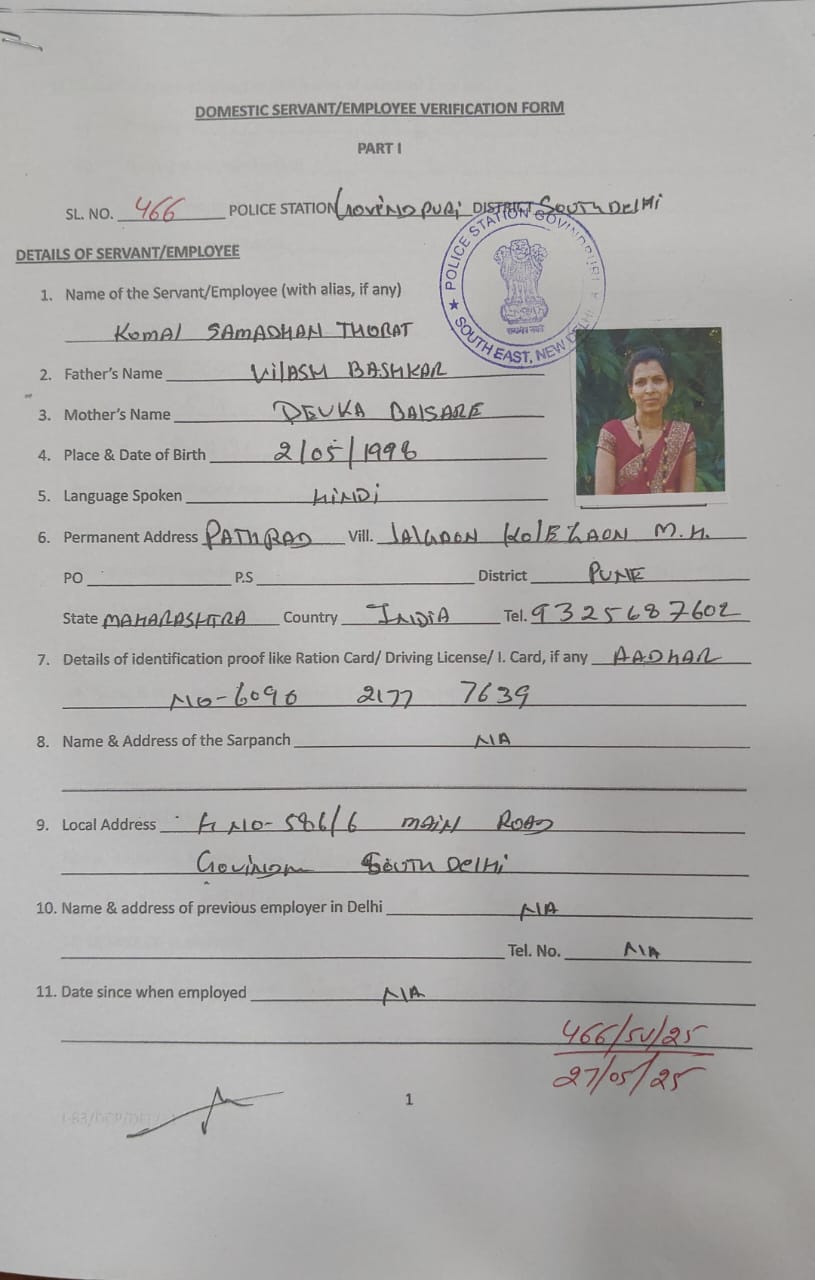 DOMESTIC SERVANT/EMPLOYEE VERIFICATION FORM
PART I
SL. NO. 466 POLICE STATION GOVIND PURI DISTRICT SOUTH DELHI
POLICE STATION GOVINDPURI ★ SOUTH EAST, NEW DELHI ★
सत्यमेव जयते
DETAILS OF SERVANT/EMPLOYEE
1. Name of the Servant/Employee (with alias, if any)
KOMAL SAMADHAN THORAT
2. Father's Name VILASH BASHKAR
3. Mother's Name DEVKA BAISARE
4. Place & Date of Birth 2/05/1998
5. Language Spoken HINDI
6. Permanent Address PATHRAD Vill. JALGAON M.H.
PO P.S District PUNE
State MAHARASHTRA Country INDIA Tel. 9325687602
7. Details of identification proof like Ration Card/ Driving License/ I. Card, if any AADHAR
NO-6096 2177 7639
8. Name & Address of the Sarpanch NIA
9. Local Address H NO-586/6 MAIN ROAD
SOUTH DELHI
10. Name & address of previous employer in Delhi NIA
Tel. No. NIA
11. Date since when employed NIA
466/SV/25
27/05/25
1